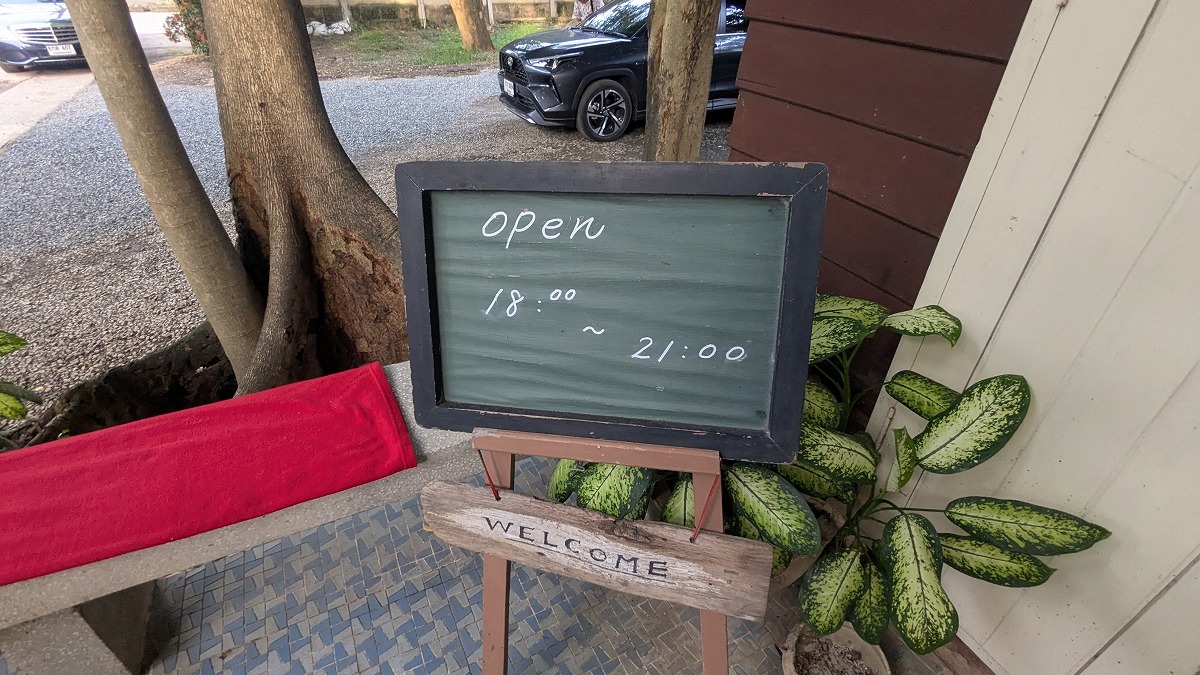 open
18:00
~
21:00
WELCOME